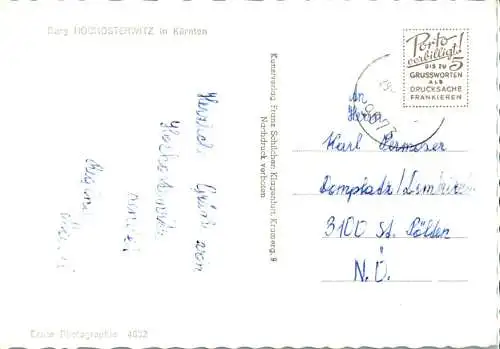 Burg HOCHOSTERWITZ in Kärnten
Herzliche Grüße von
Hochosterwitz
Kunstverlag Franz Schilcher, Klagenfurt, Kramerg. 9
Nachdruck verboten
Porto
verbilligt!
BIS ZU 5
GRUSSWORTEN
ALS
DRUCKSACHE
FRANKIEREN
An
Herrn
Karl Permoser
Domplatz/
3100 St. Pölten
N.Ö.
Echte Photographie 4632